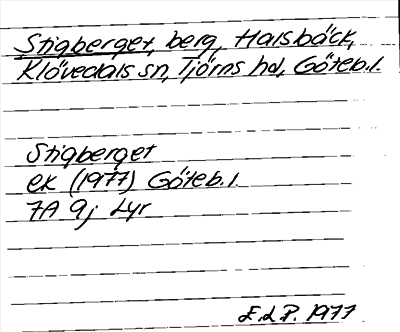 Stigberget, berg, Halsbäck,
Klövedals sn, Tjörns hd, Göteb. l.
Stigberget
ek (1977) Göteb. l.
7A 9j Lyr
E.L.P. 1977